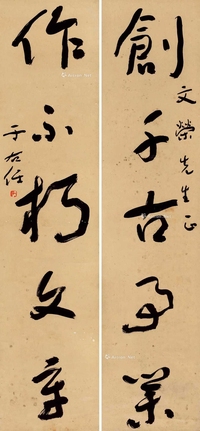 創千古事業
文榮先生正
作不朽文章
于右任